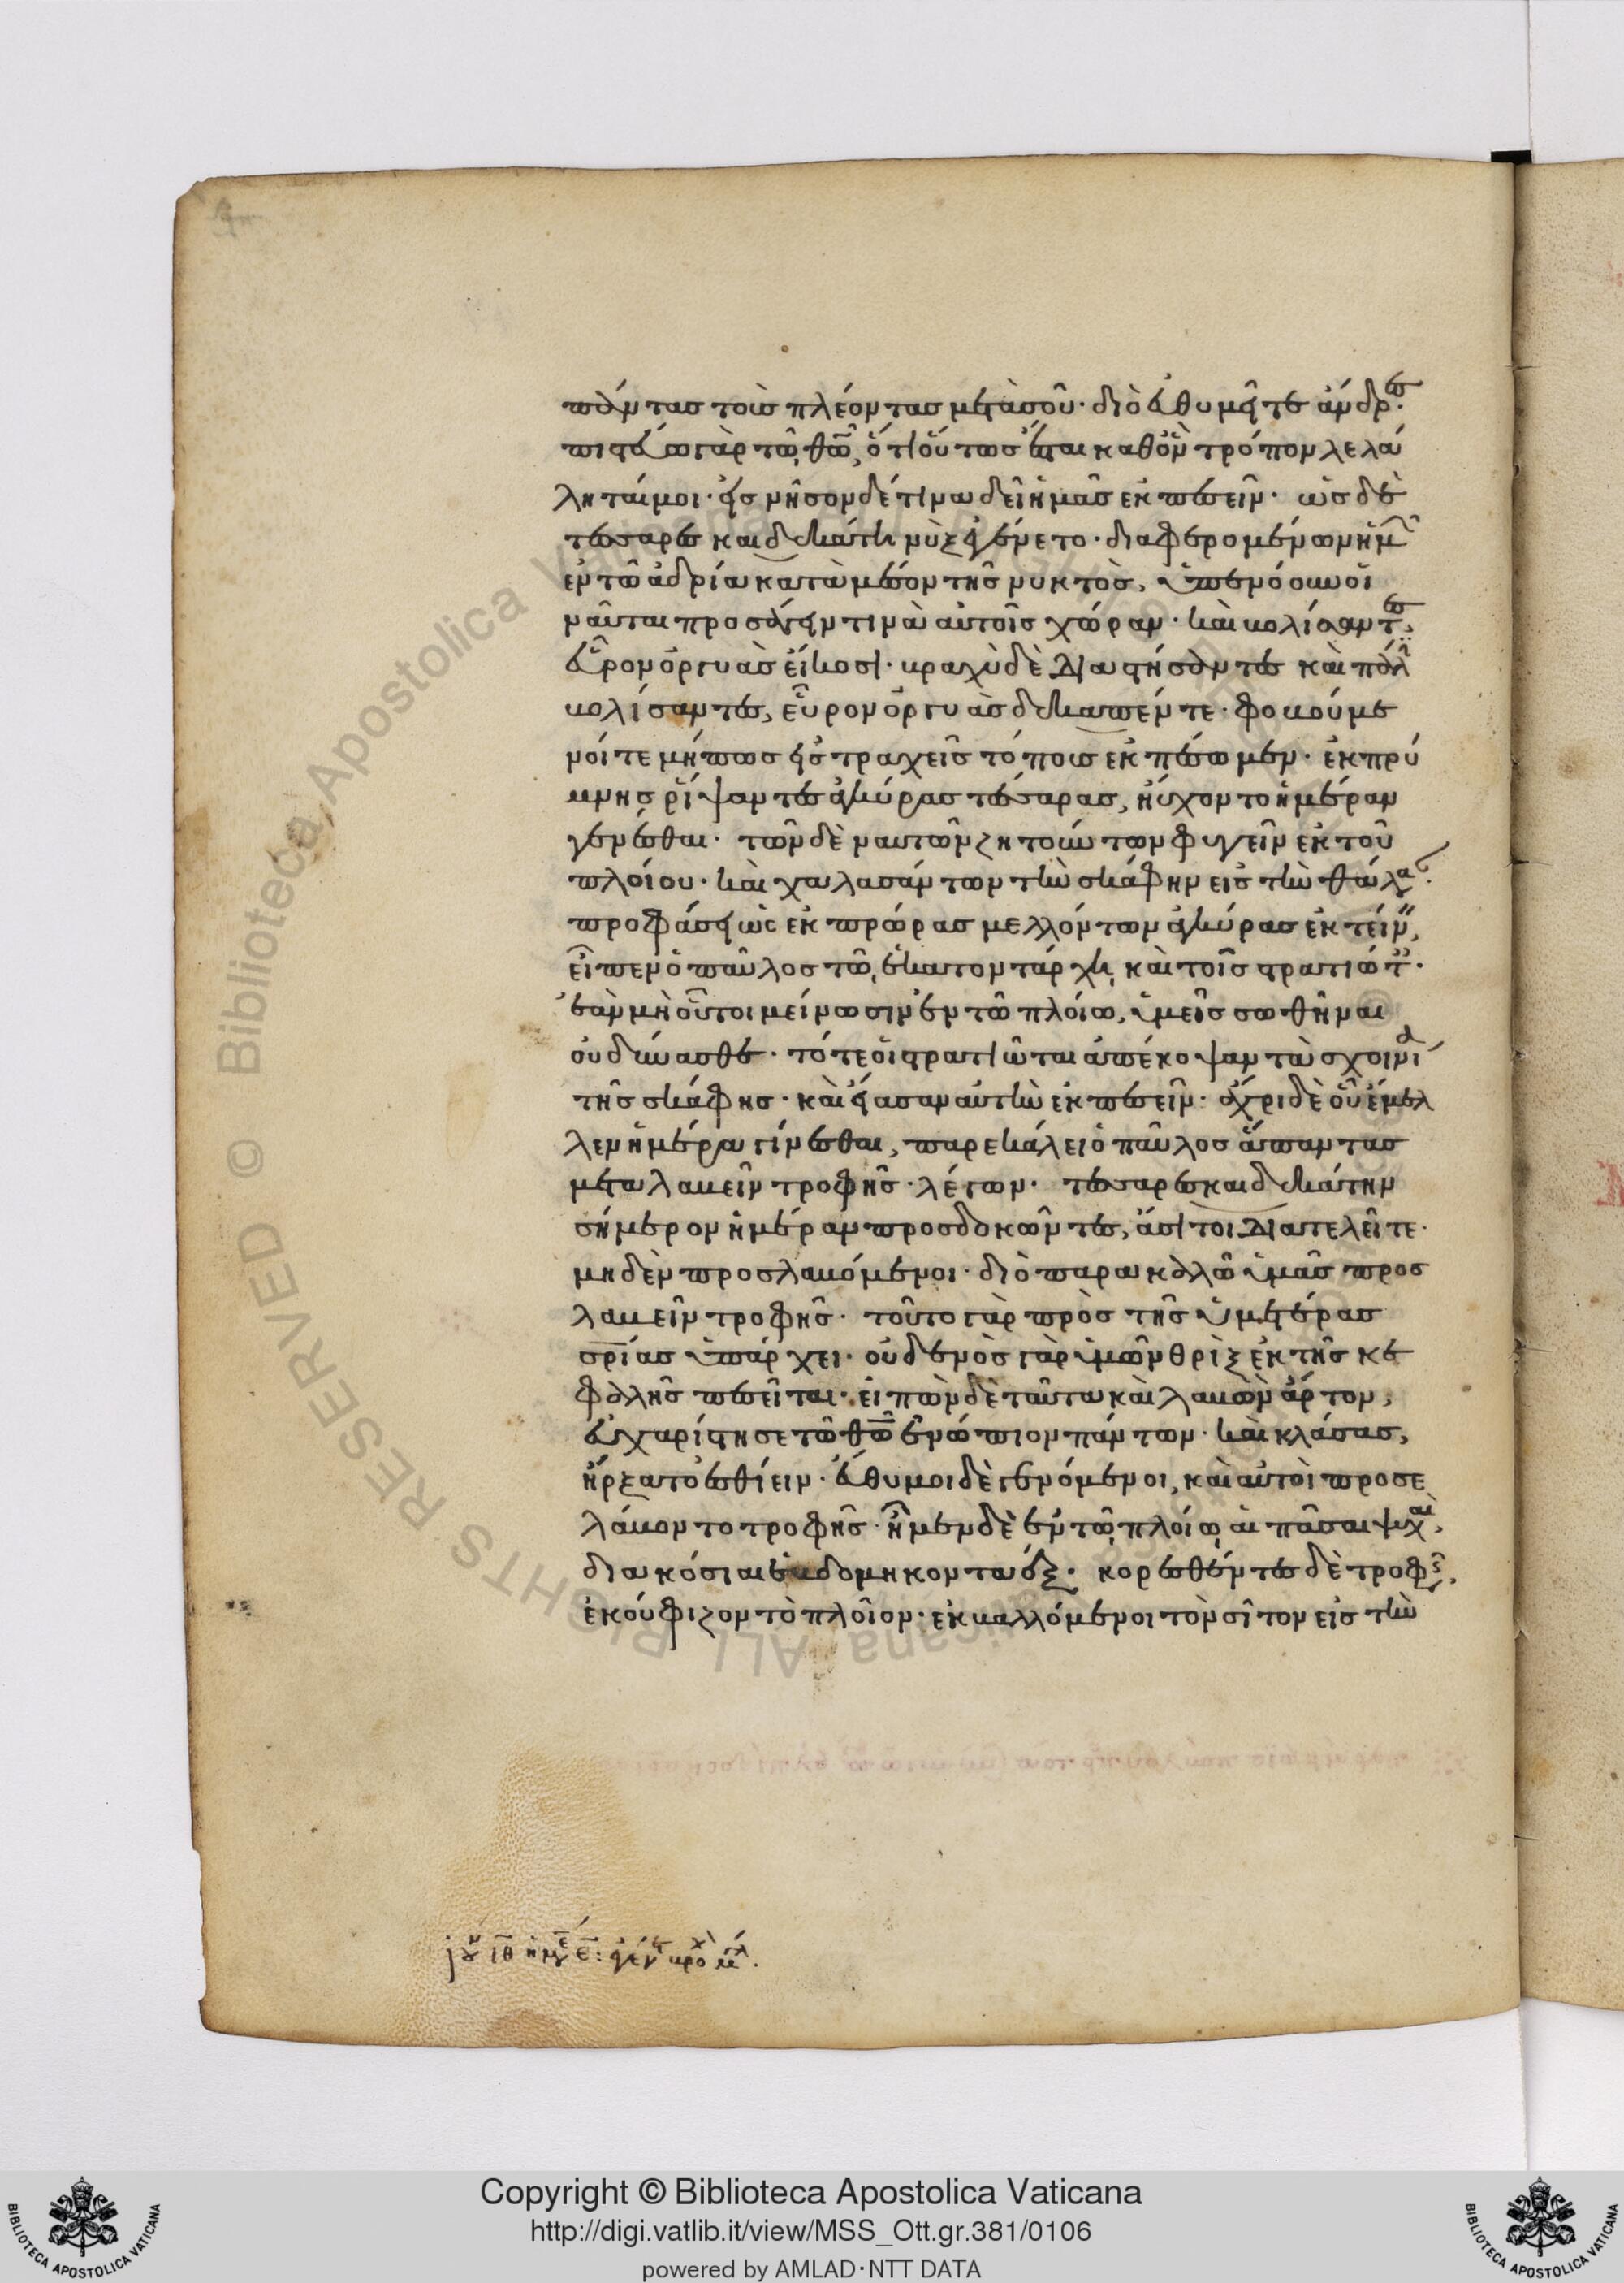 πάντας τοὺς πλέοντας μετὰ σοῦ· διὸ εὐθυμεῖτε ἄνδρες·
πιστεύω γὰρ τῶ θῶ, ὅτι οὕτως ἔσται καθ ὃν τρόπον λελά
ληταί μοι· εἰς νῆσον δέ τινα δεῖ ἡμᾶς ἐκπεσεῖν· ὡς δὲ
τεσσαρεσκαιδεκάτη νὺξ ἐγένετο· διαφερομένων ἡμῶν
ἐν τῶ ἀδρία κατὰ μέσον τῆς νυκτὸς, ὑπενόουν οἱ
ναῦται προσάγειν τινὰ αὐτοῖς χώραν· καὶ βολίσαντες,
εὗρον ὀργυὰς εἴκοσι· βραχὺ δὲ διαστήσαντες καὶ πάλιν
βολίσαντες, εὗρον ὀργυὰς δεκαπέντε· φοβούμε
νοί τε μήπως εἰς τραχεῖς τόπους ἐκπέσωμεν· ἐκ πρύ
μνης ῥίψαντες ἀγκύρας τέσσαρας, ηὔχοντο ἡμέραν
γενέσθαι· τῶν δὲ ναυτῶν ζητούντων φυγεῖν ἐκ τοῦ
πλοίου· καὶ χαλασάντων τὴν σκάφην εἰς τὴν θάλασ·
προφάσει ὡς ἐκ πρώρας μελλόντων ἀγκύρας ἐκτείνειν,
εἶπεν ὁ παῦλος τῶ ἑκατοντάρχη, καὶ τοῖς στρατιώταις·
ἐὰν μὴ οὗτοι μείνωσιν ἐν τῶ πλοίω, ὑμεῖς σωθῆναι
οὐ δύνασθε· τότε οἱ στρατιῶται ἀπέκοψαν τὰ σχοινία
τῆς σκάφης· καὶ εἴασαν αὐτὴν ἐκπεσεῖν· ἄχρι δὲ οὗ ἔμελ
λεν ἡμέρα γίνεσθαι, παρεκάλει ὁ παῦλος ἅπαντας
μεταλαβεῖν τροφῆς· λέγων· τεσσαρεσκαιδεκάτην
σήμερον ἡμέραν προσδοκῶντες, ἄσιτοι διατελεῖτε·
μηδὲν προσλαβόμενοι· διὸ παρακαλῶ ὑμᾶς προσ
λαβεῖν τροφῆς· τοῦτο γὰρ πρὸς τῆς ὑμετέρας
σρίας ὑπάρχει· οὐδενὸς γὰρ ὑμῶν θρὶξ ἐκ τῆς κε
φαλῆς πεσεῖται· εἰπὼν δὲ ταῦτα καὶ λαβὼν ἄρτον,
εὐχαρίστησε τῶ θῶ ἐνώπιον πάντων· καὶ κλάσας,
ἤρξατο ἐσθίειν· εὔθυμοι δὲ γενόμενοι, καὶ αὐτοὶ προσε
λάβοντο τροφῆς· ἦμεν δὲ ἐν τῶ πλοίω αἱ πᾶσαι ψυχαὶ,
διακόσιαι ἑβδομηκονταέξ· κορεσθέντες δὲ τροφῆς,
ἐκούφιζον τὸ πλοῖον· ἐκβαλλόμενοι τὸν σῖτον εἰς τὴν
Copyright © Biblioteca Apostolica Vaticana
http://digi.vatlib.it/view/MSS_Ott.gr.381/0106
powered by AMLAD·NTT DATA